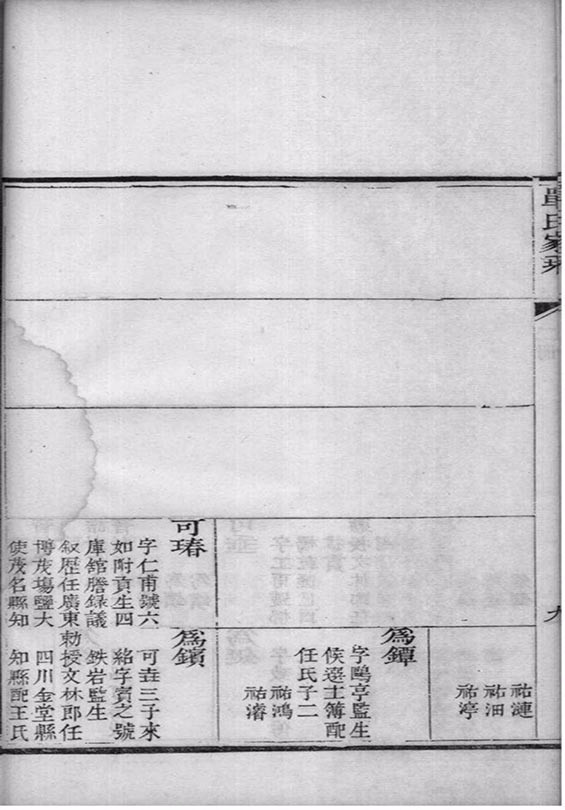 單氏家乘
九
祐漣
祐沺
祐渟
爲鐔
字鷗亭監生
候選主簿配
任氏子二
祐鴻
祐濬
可瑃
字仁甫號六
如附貢生四
庫舘謄錄議
叙歷任廣東
博茂塲鹽大
使茂名縣知
爲鑌
可垚三子來
絡字賓之號
鉄岩監生
勅授文林郎任
四川金堂縣
知縣配王氏